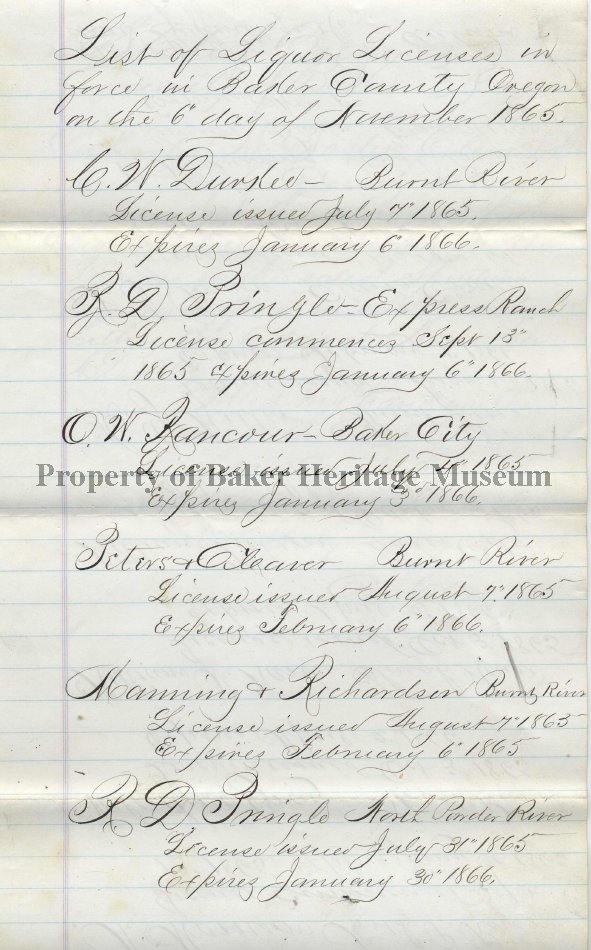 List of Liquor Licenses in
force in Baker County Oregon
on the 6" day of November 1865.
C. W. Durkee - Burnt River
License issued July 7" 1865.
Expires January 6" 1866.
R. D. Pringle - Express Ranch
License commences Sept 13"
1865 expires January 6" 1866.
O. W. Rancour - Baker City
License issued July 1865
Property of Baker Heritage Museum
Expires January 3d 1866.
Peters & Cleaver Burnt River
License issued August 7" 1865
Expires February 6" 1866.
Manning & Richardson Burnt River
License issued August 7" 1865
Expires February 6" 1865
R D Pringle North Powder River
License issued July 31" 1865
Expires January 30" 1866.